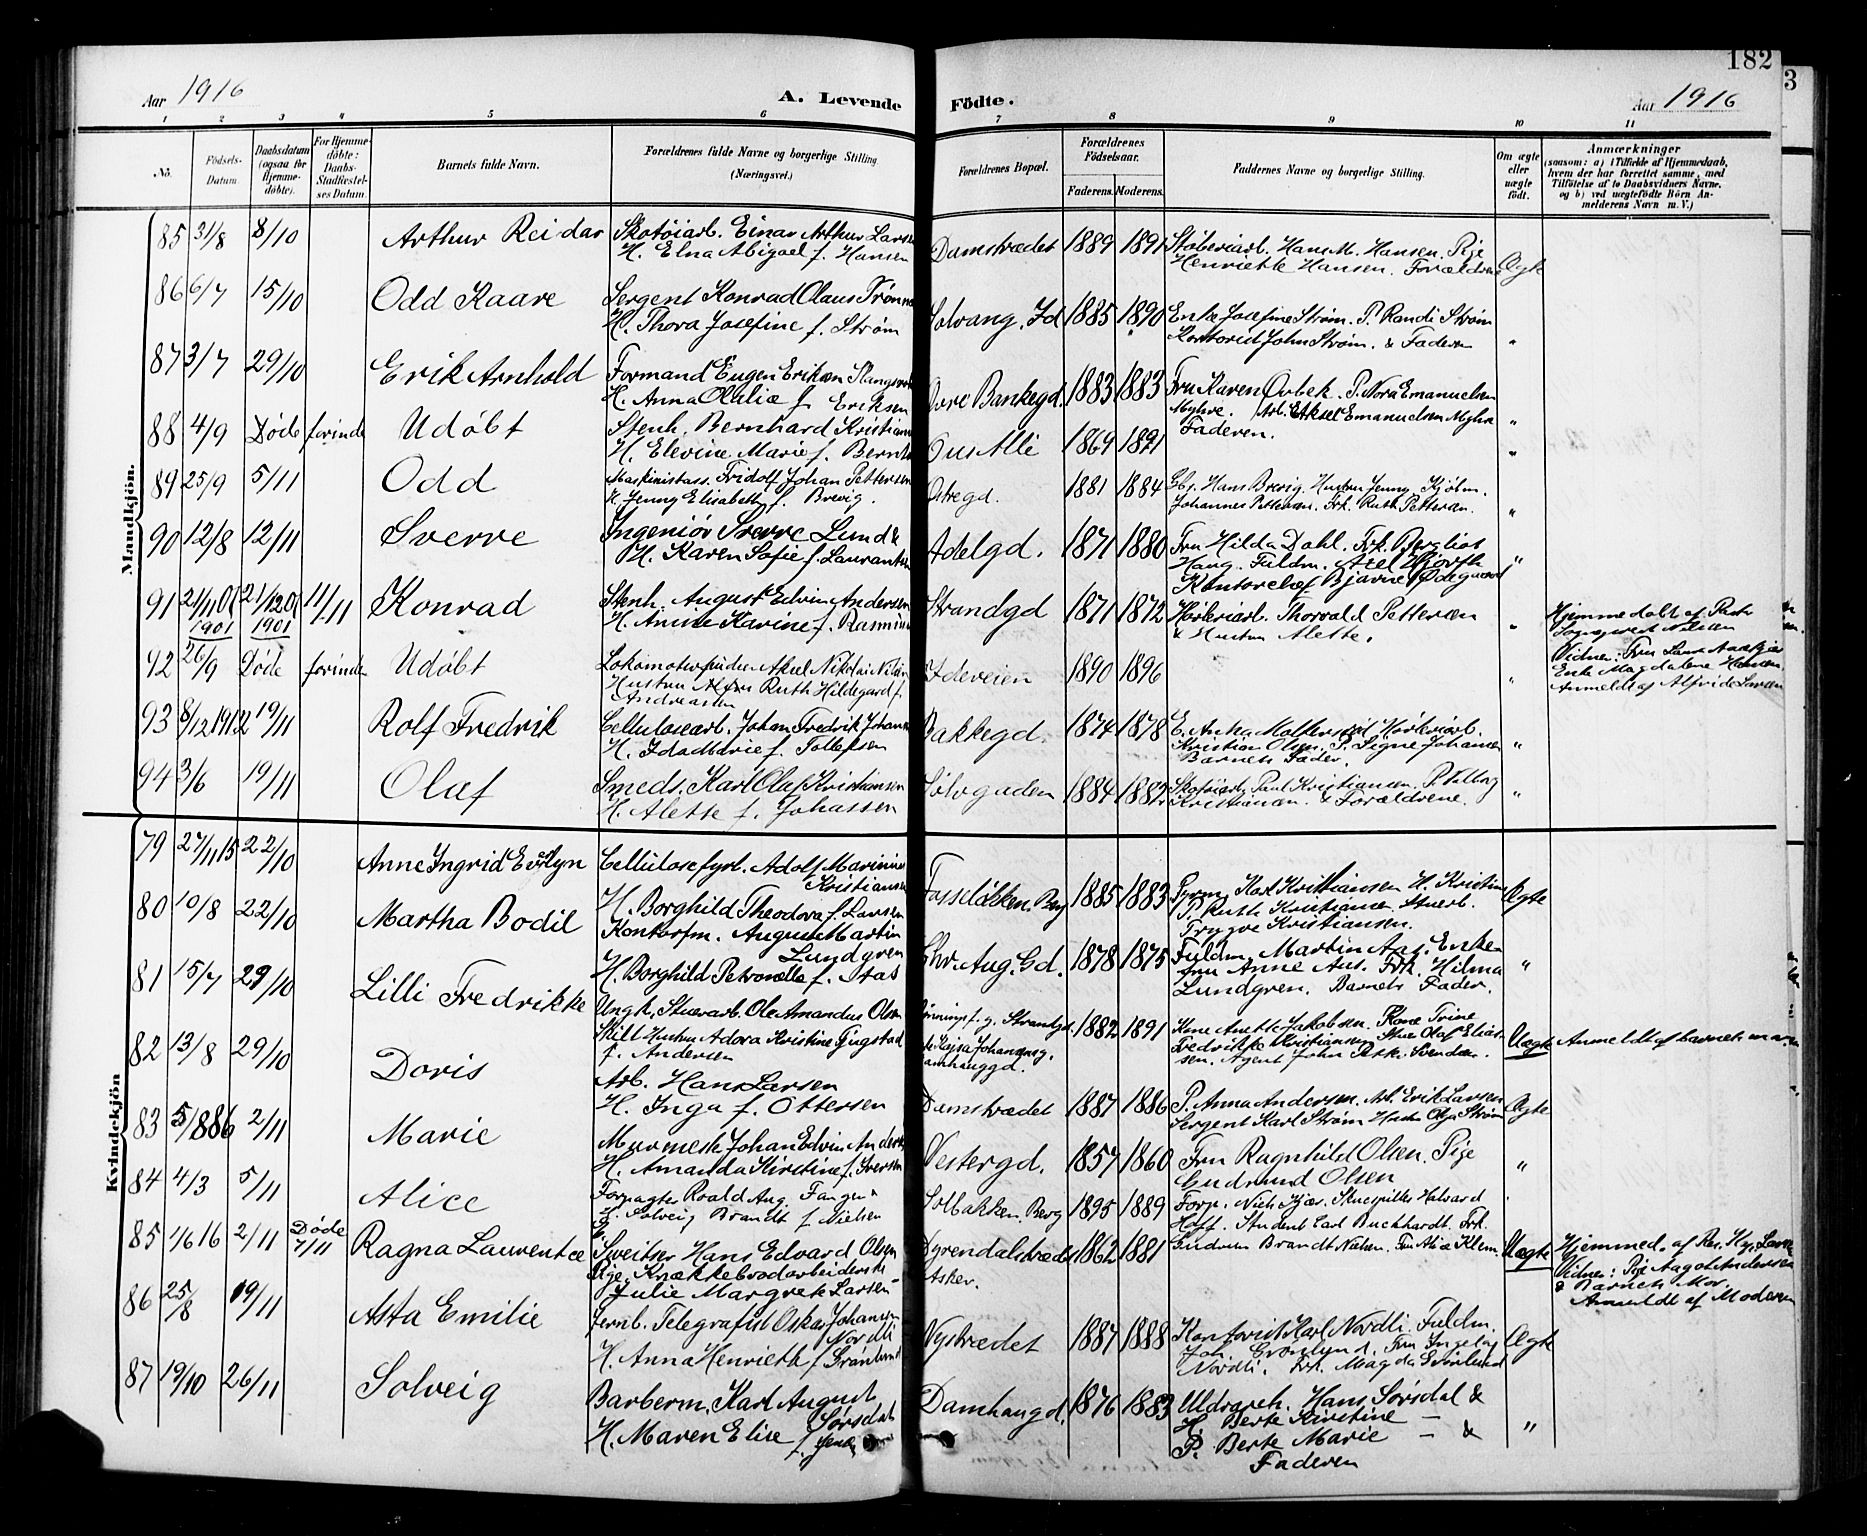 182
Aar 1916
A. Levende
Födte.
Aar 1916
1 2 3 4 5 6 7 8 9 10 11
No.
Födsels-Datum.
Daabsdatum (ogsaa for Hjemme-döbte).
For Hjemme-döbte: Daabs-Stadfæstel-ses Datum.
Barnets fulde Navn.
Forældrenes fulde Navne og borgerlige Stilling. (Næringsvei.)
Forældrenes Bopæl.
Forældrenes Födselsaar.
Faderens. Moderens.
Faddernes Navne og borgerlige Stilling.
Om ægte eller uægte födt.
Anmærkninger
(saasom: a) i Tilfælde af Hjemmedaab, hvem der har forrettet samme, med Tilföielse af to Daabsvidners Navne, og b) ved uægtefödte Börn An-melderens Navn m. V.)
Mandkjön.
85 31/8 8/10 Arthur Reidar Skotøiarb. Einar Arthur Larsen
H. Elna Abigael f. Hansen
Damstrædet 1889 1891 Støberiarb. Hans M. Hansen. Pige
Henriette Hansen. Forældrene Ægte
86 6/7 15/10 Odd Kaare Sergent Konrad Olaus
H. Thora Josefine f. Strøm
Solvang. Id 1885 1890 Enke Josefine Strøm. P. Randi Strøm
Kontorist John Strøm. & Faderen "
87 3/7 29/10 Erik Arnhold Formand Eugen Eriksen
H. Anna Olalia f. Eriksen
Øvre Bankegd. 1883 1883 Fru Karen Ovbek. P. Nora Emanuelsen
Myhre. Arb. Aksel Emanuelsen Myhre
Faderen. "
88 4/9 Døde forinden Udøbt Stenh. Bernhard
H. Elevine Marie f.
Ous Alle 1869 1891 "
89 25/9 5/11 Odd Maskinistass. Fridolf Johan Pettersen
H. Jenny Elisabeth f. Brevig.
Østregd. 1881 1884 Gbr. Hans Brevig. Hustru Jenny Kjølm.
Johannes Pettersen. Frk. Ruth Pettersen. "
90 12/8 12/11 Sverre Ingeniør Sverre Lund &
H. Karen Sofie f.
Adelgd. 1871 1880 Fru Hilda Dahl. Frk. Bergliot
Haug. Fuldm. Axel Hjorth
Kontorchef Bjarne Ødegaard "
91 21/11 01 1901 21/12 01 1901 11/11 Konrad Stenh. August Edvin Andersen
H. Anne Karine f.
Strandgd 1871 1872 Thorvald Pettersen
& Hustru Alette. "
Hjemmedøbt af
Vidner: Fru
Enke Magdalene Hansen
Anmeldt af Alfride Larsen
92 26/9 Døde forinden Udøbt Aksel Nikolai
Hustru Ruth Hildegard f.
Andreassen
Ideveien 1890 1896 "
93 8/12 1912 19/11 Rolf Fredrik Cellulosearb. Johan Fredrik
H. Ida Marie f. Tollefsen
Bakkegd. 1874 1878 E. Anna
Kristian Olsen. P. Signe Johansen
Barnets Fader. "
94 3/6 19/11 Olaf Smeds. Karl Olaf Kristiansen
H. Alette f. Johassen
Sølvgaden 1884 1882 Skotøiarb. Paul Kristiansen. P. Valborg
Kristiansen. & Forældrene. "
Kvindekjön
79 27/11 15 22/10 Anne Ingrid Evelyn Cellulosefyrb. Adolf Marinius
Kristiansen
H. Borghild Theodora f. Larsen
Berg 1885 1883 Karl Kristiansen H. Kristine
P. Ruth Kristiansen. Stuerb.
Trygve Kristiansen. Ægte
80 10/8 22/10 Martha Bodil Kontorfm. August Martin
Lundgren
H. Borghild Petronelle f. Aas
Chr. Aug. Gd. 1878 1875 Fuldm. Martin Aas. Enke-
fru Anne Aas. Frk. Hilma
Lundgren. Barnets Fader. "
81 15/7 29/10 Lilli Fredrikke Ungk. Stuerarb. Ole Amandus Olsen
Skilt Hustru Adora Kristine Fjugstad
f. Andersen
Strandgd. 1882 1891 Kone Anette Jakobsen. Kone Trine
Fredrikke Kristiansen. Stuer Olaf Elias-
sen. Agent John Svendsen. Uægte Anmeldt af barnets mor
82 13/8 29/10 Doris Arb. Hans Larsen
H. Inga f. Ottersen
Damstrædet 1887 1886 P. Anna Andersen. Arb. Erik Larsen
Sergent Karl Strøm Hustru Olga Strøm Ægte
83 5/1886 2/11 Marie Murmester Johan Edvin
H. Amanda Kirstine f. Iversen
Vestergd. 1857 1860 Fru Ragnhild Olsen. Pige
Gudrund Olsen "
84 4/3 5/11 Alice Forpagter Roald Aug. Fangen
H. Solveig Brandt f. Nielsen
Solbakken. Berg 1895 1889 Forp. Niels Kjær. Skuespiller Halvard
Hoff. Student Carl Buckhardt. Frk.
Gudrun Brandt Nielsen. Fru Alice Klem
85 4/6 16 2/11 Døde 7/11 Ragna Laurentce Sveitser Hans Edvard Olsen
Pige. Knækkebrødarbeiderske
Julie Margrete Larsen
Dyrendalstrædet
Asker.
1862 1881 Uægte Hjemmed. af Res. Kap.
Vidner: Pige Aagot Andersen
& Barnets Mor
Anmeldt af Moderen
86 25/8 19/11 Asta Emilie Jernb. Telegrafist Oskar Johansen
Nordli
H. Anna Henriette f. Grønlund
Nystrædet 1887 1888 Kontorist Karl Nordli. Fuldm.
Joh. Grønlund. Fru Ingeborg
Nordli. Frk. Magda Grønlund Ægte
87 19/10 26/11 Solveig Barberm. Karl August
Sørsdal
H. Maren Elise f.
Damhaugd. 1876 1883 Uldspreh. Hans Sørsdal &
H. Berte Kirstine —
P. Berte Marie — &
Faderen "